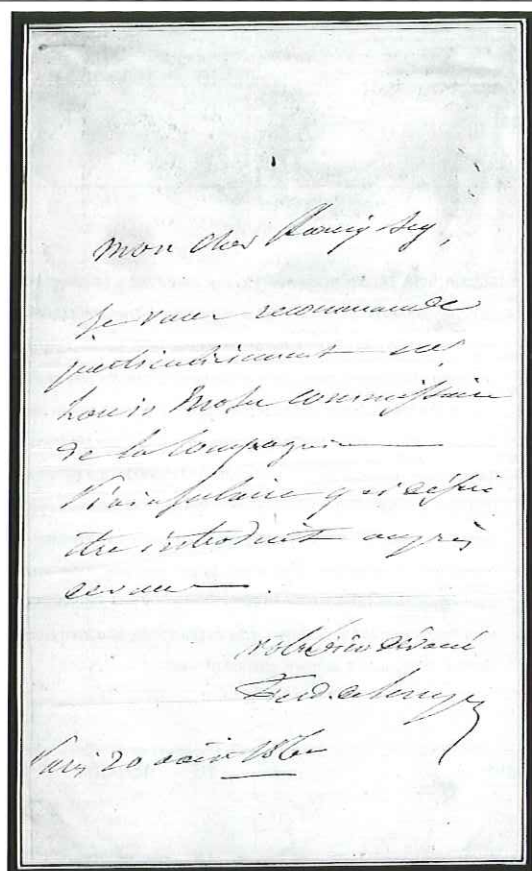 mon cher Kœnig Bey,
Je vous recommande
particulièrement
Louis commissaire
de la Compagnie
Péninsulaire qui désire
être introduit auprès
de vous.
votre bien dévoué
Ferd. de Lesseps
Paris 20 août